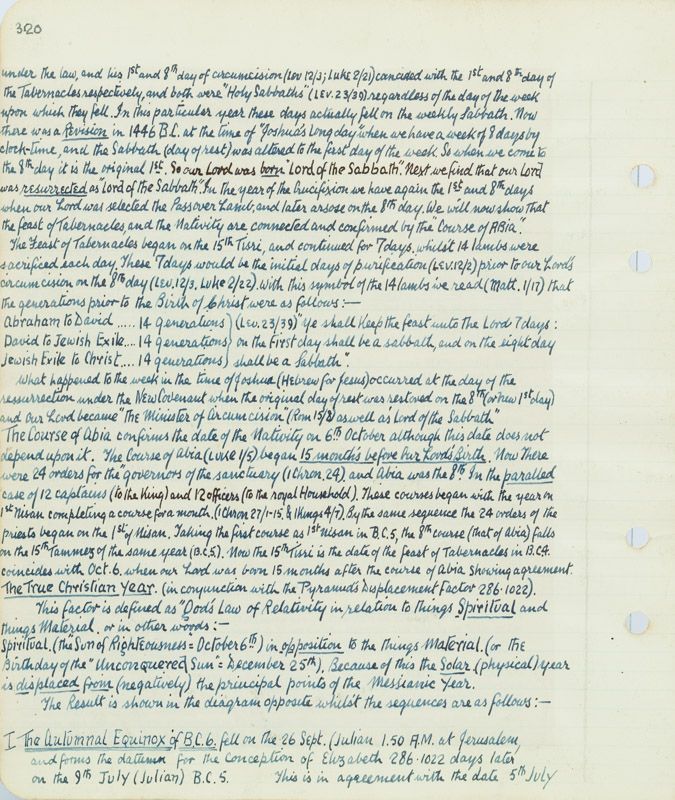 320
under the law, and his 1st and 8th day of circumcision (Lev 12/3; Luke 2/21) concided with the 1st and 8th day of
the Tabernacles respectively, and both were "Holy Sabbaths" (LEV. 23/39) regardless of the day of the week
upon which they fell. In this particular year these days actually fell on the weekly Sabbath. Now
there was a Revision in 1446 B.C. at the time of "Joshua's Long day" when we have a week of 8 days by
clock-time, and the Sabbath (day of rest) was altered to the first day of the week. So when we come to
the 8th day it is the original 1st. So our Lord was born "Lord of the Sabbath". Next we find that our Lord
was resurrected as Lord of the Sabbath". In the year of the Crucifixion we have again the 1st and 8th days
when our Lord was selected the Passover Lamb, and later arsose on the 8th day. We will now show that
the feast of Tabernacles, and the Nativity are connected and confirmed by the Course of ABia".
The Feast of Tabernacles began on the 15th Tisri, and continued for 7 days, whilst 14 lambs were
sacrificed each day. These 7 days would be the initial days of purification (LEV. 12/2) prior to our Lord's
circumcision on the 8th day (LEV. 12/3, Luke 2/22). With this symbol of the 14 lambs we read (Matt. 1/17) that
the generations prior to the Birth of Christ were as follows:—
Abraham to David ..... 14 generations } (Lev. 23/39) "ye shall keep the feast unto the Lord 7 days:
David to Jewish Exile.... 14 generations } on the first day shall be a sabbath, and on the eight day
Jewish Exile to Christ.... 14 generations } shall be a Sabbath".
What happened to the week in the time of Joshua (Hebrew for Jesus) occurred at the day of the
ressurrection under the New Covenant when the original day of rest was restored on the 8th (or new 1st day)
and our Lord became "The Minister of Circumcision" (Rom 15/8) as well as 'Lord of the Sabbath"
The Course of Abia confirms the date of the Nativity on 6th October although this date does not
depend upon it. The Course of Abia (Luke 1/5) began 15 months before Our Lord's Birth. Now there
were 24 orders for the "governors of the sanctuary (1 Chron, 24), and Abia was the 8th. In the paralled
case of 12 captains (to the King) and 12 officers (to the royal Household). These courses began with the year on
1st Nisan completing a course for a month. (1 Chron 27/1-15, & 1 Kings 4/7). By the same sequence the 24 orders of the
priests began on the 1st of Nisan. Taking the first course as 1st Nisan in B.C. 5, the 8th course (that of Abia) falls
on the 15th Tammez of the same year (B.C. 5). Now the 15th Tisri is the date of the feast of Tabernacles in B.C. 4.
coincides with Oct. 6. when our Lord was born 15 months after the course of Abia showing agreement.
The True Christian Year. (in conjunction with the Pyramid's Displacement Factor 286·1022).
This factor is defined as "God's Law of Relativity in relation to things Spiritual and
things Material, or in other words:—
Spiritual, (the Sun of Righteousness = October 6th) in opposition to the things Material. (or the
Birthday of the "Unconquered Sun" = December 25th), Because of this the Solar (physical) year
is displaced from (negatively) the principal points of the Messianic Year.
The Result is shown in the diagram opposite whilst the sequences are as follows:—
I The Autumnal Equinox of B.C. 6. fell on the 26 Sept. (Julian 1.50 A.M. at Jerusalem,
and forms the datumn for the Conception of Elizabeth 286·1022 days later
on the 9th July (Julian) B.C. 5. This is in agreement with the date 5th July